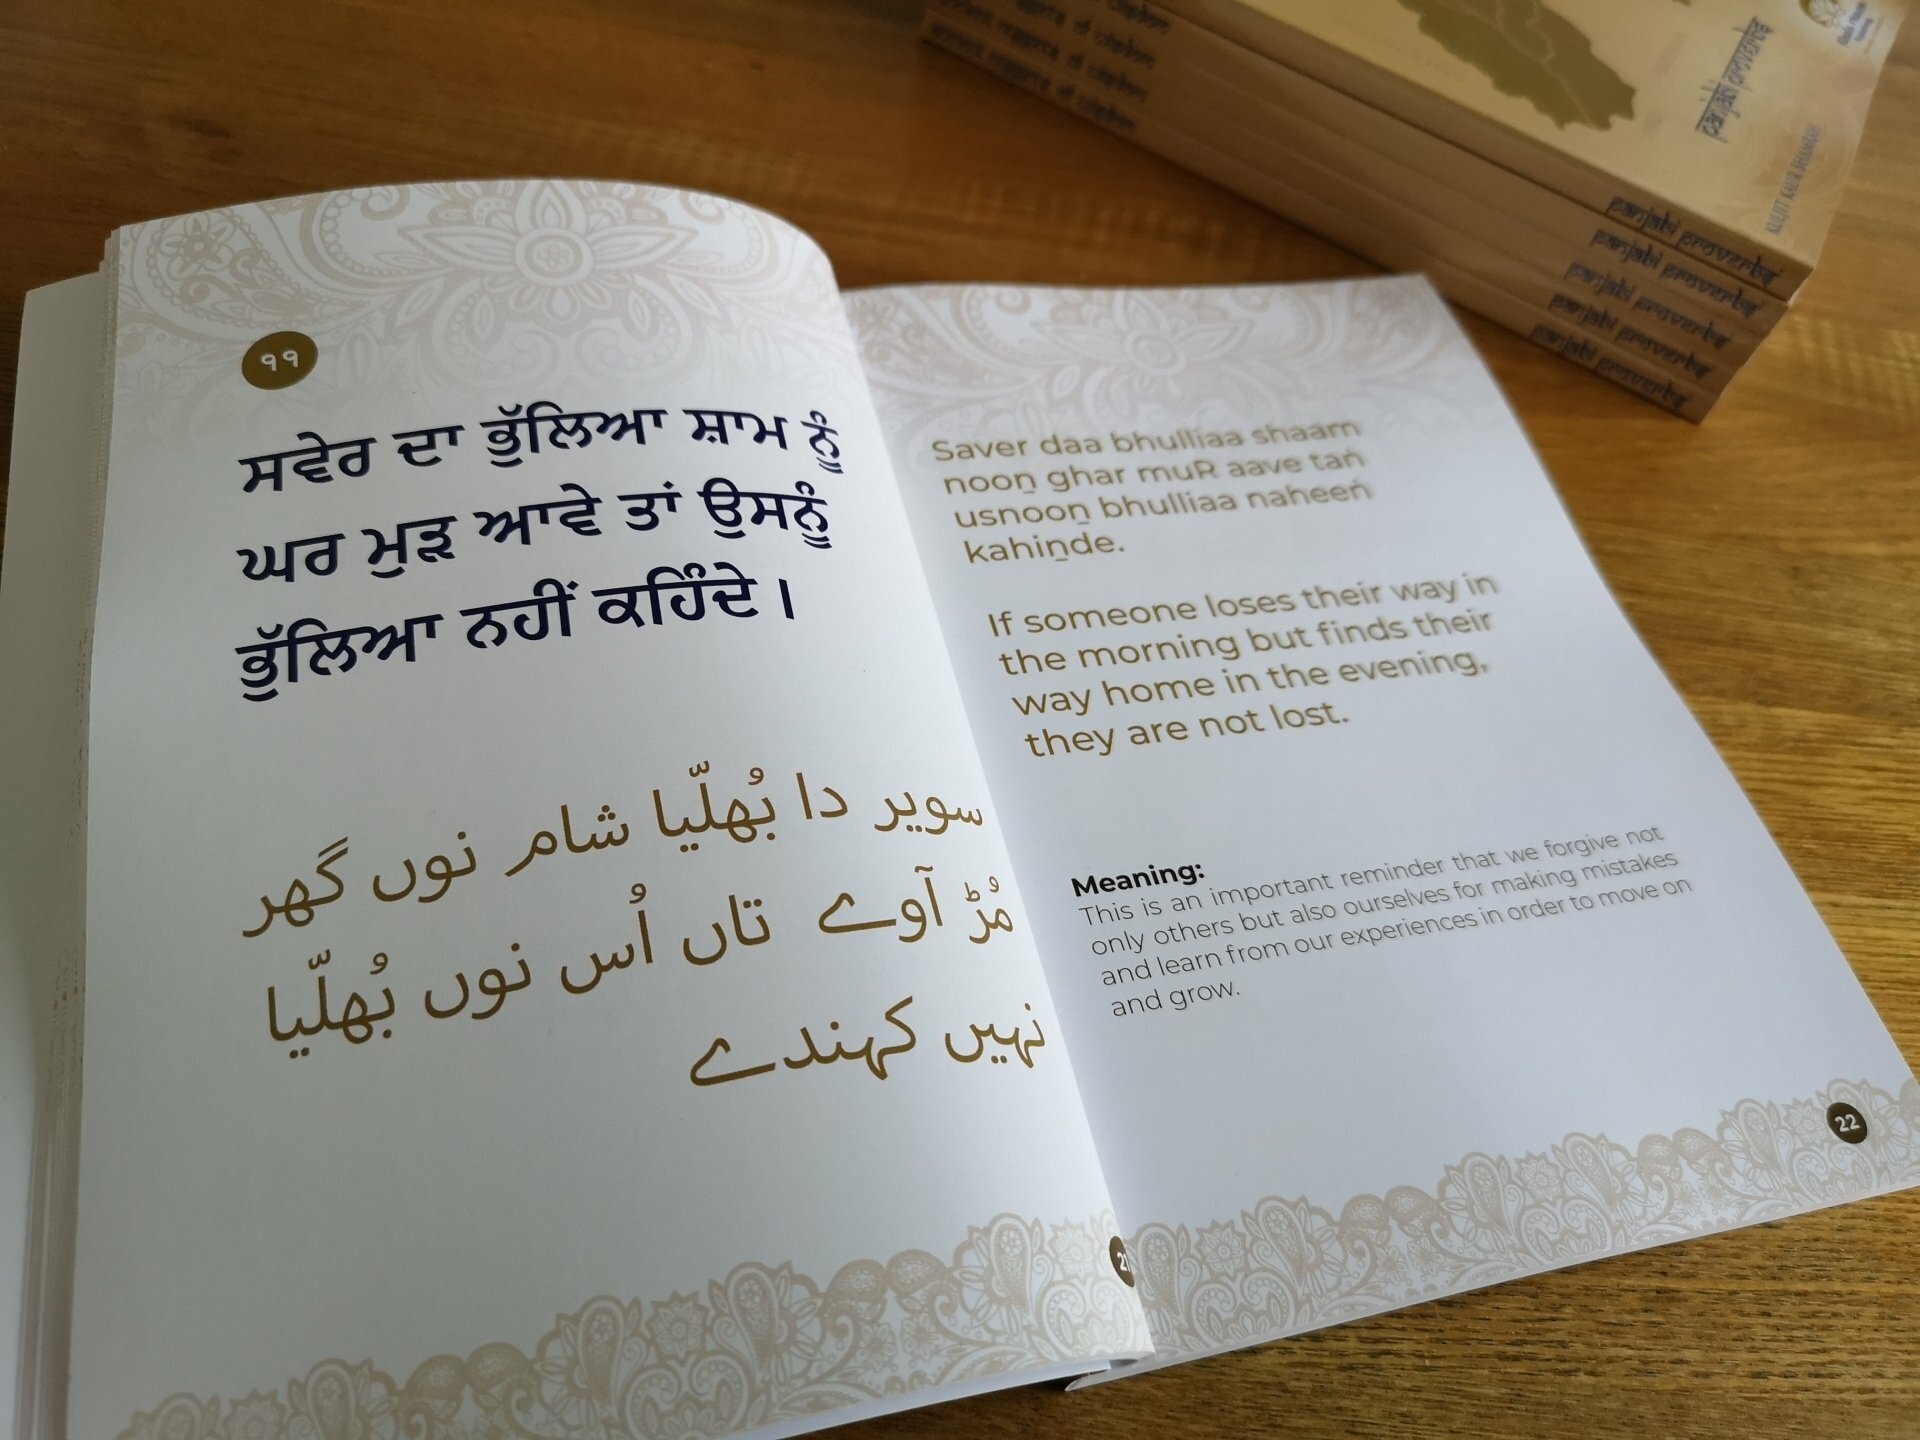 ੧੧
ਸਵੇਰ ਦਾ ਭੁੱਲਿਆ ਸ਼ਾਮ ਨੂੰ
ਘਰ ਮੁੜ ਆਵੇ ਤਾਂ ਉਸਨੂੰ
ਭੁੱਲਿਆ ਨਹੀਂ ਕਹਿੰਦੇ।
سویر دا بُھلّیا شام نوں گھر
مُڑ آوے تاں اُس نوں بُھلّیا
نہیں کہندے
21
Saver daa bhulliaa shaam
nooṉ ghar muR aave taṅ
usnooṉ bhulliaa naheeṅ
kahiṉde.
If someone loses their way in
the morning but finds their
way home in the evening,
they are not lost.
Meaning:
This is an important reminder that we forgive not
only others but also ourselves for making mistakes
and learn from our experiences in order to move on
and grow.
22
panjabi proverbs
panjabi proverbs
panjabi proverbs
panjabi proverbs
panjabi proverbs
panjabi proverbs